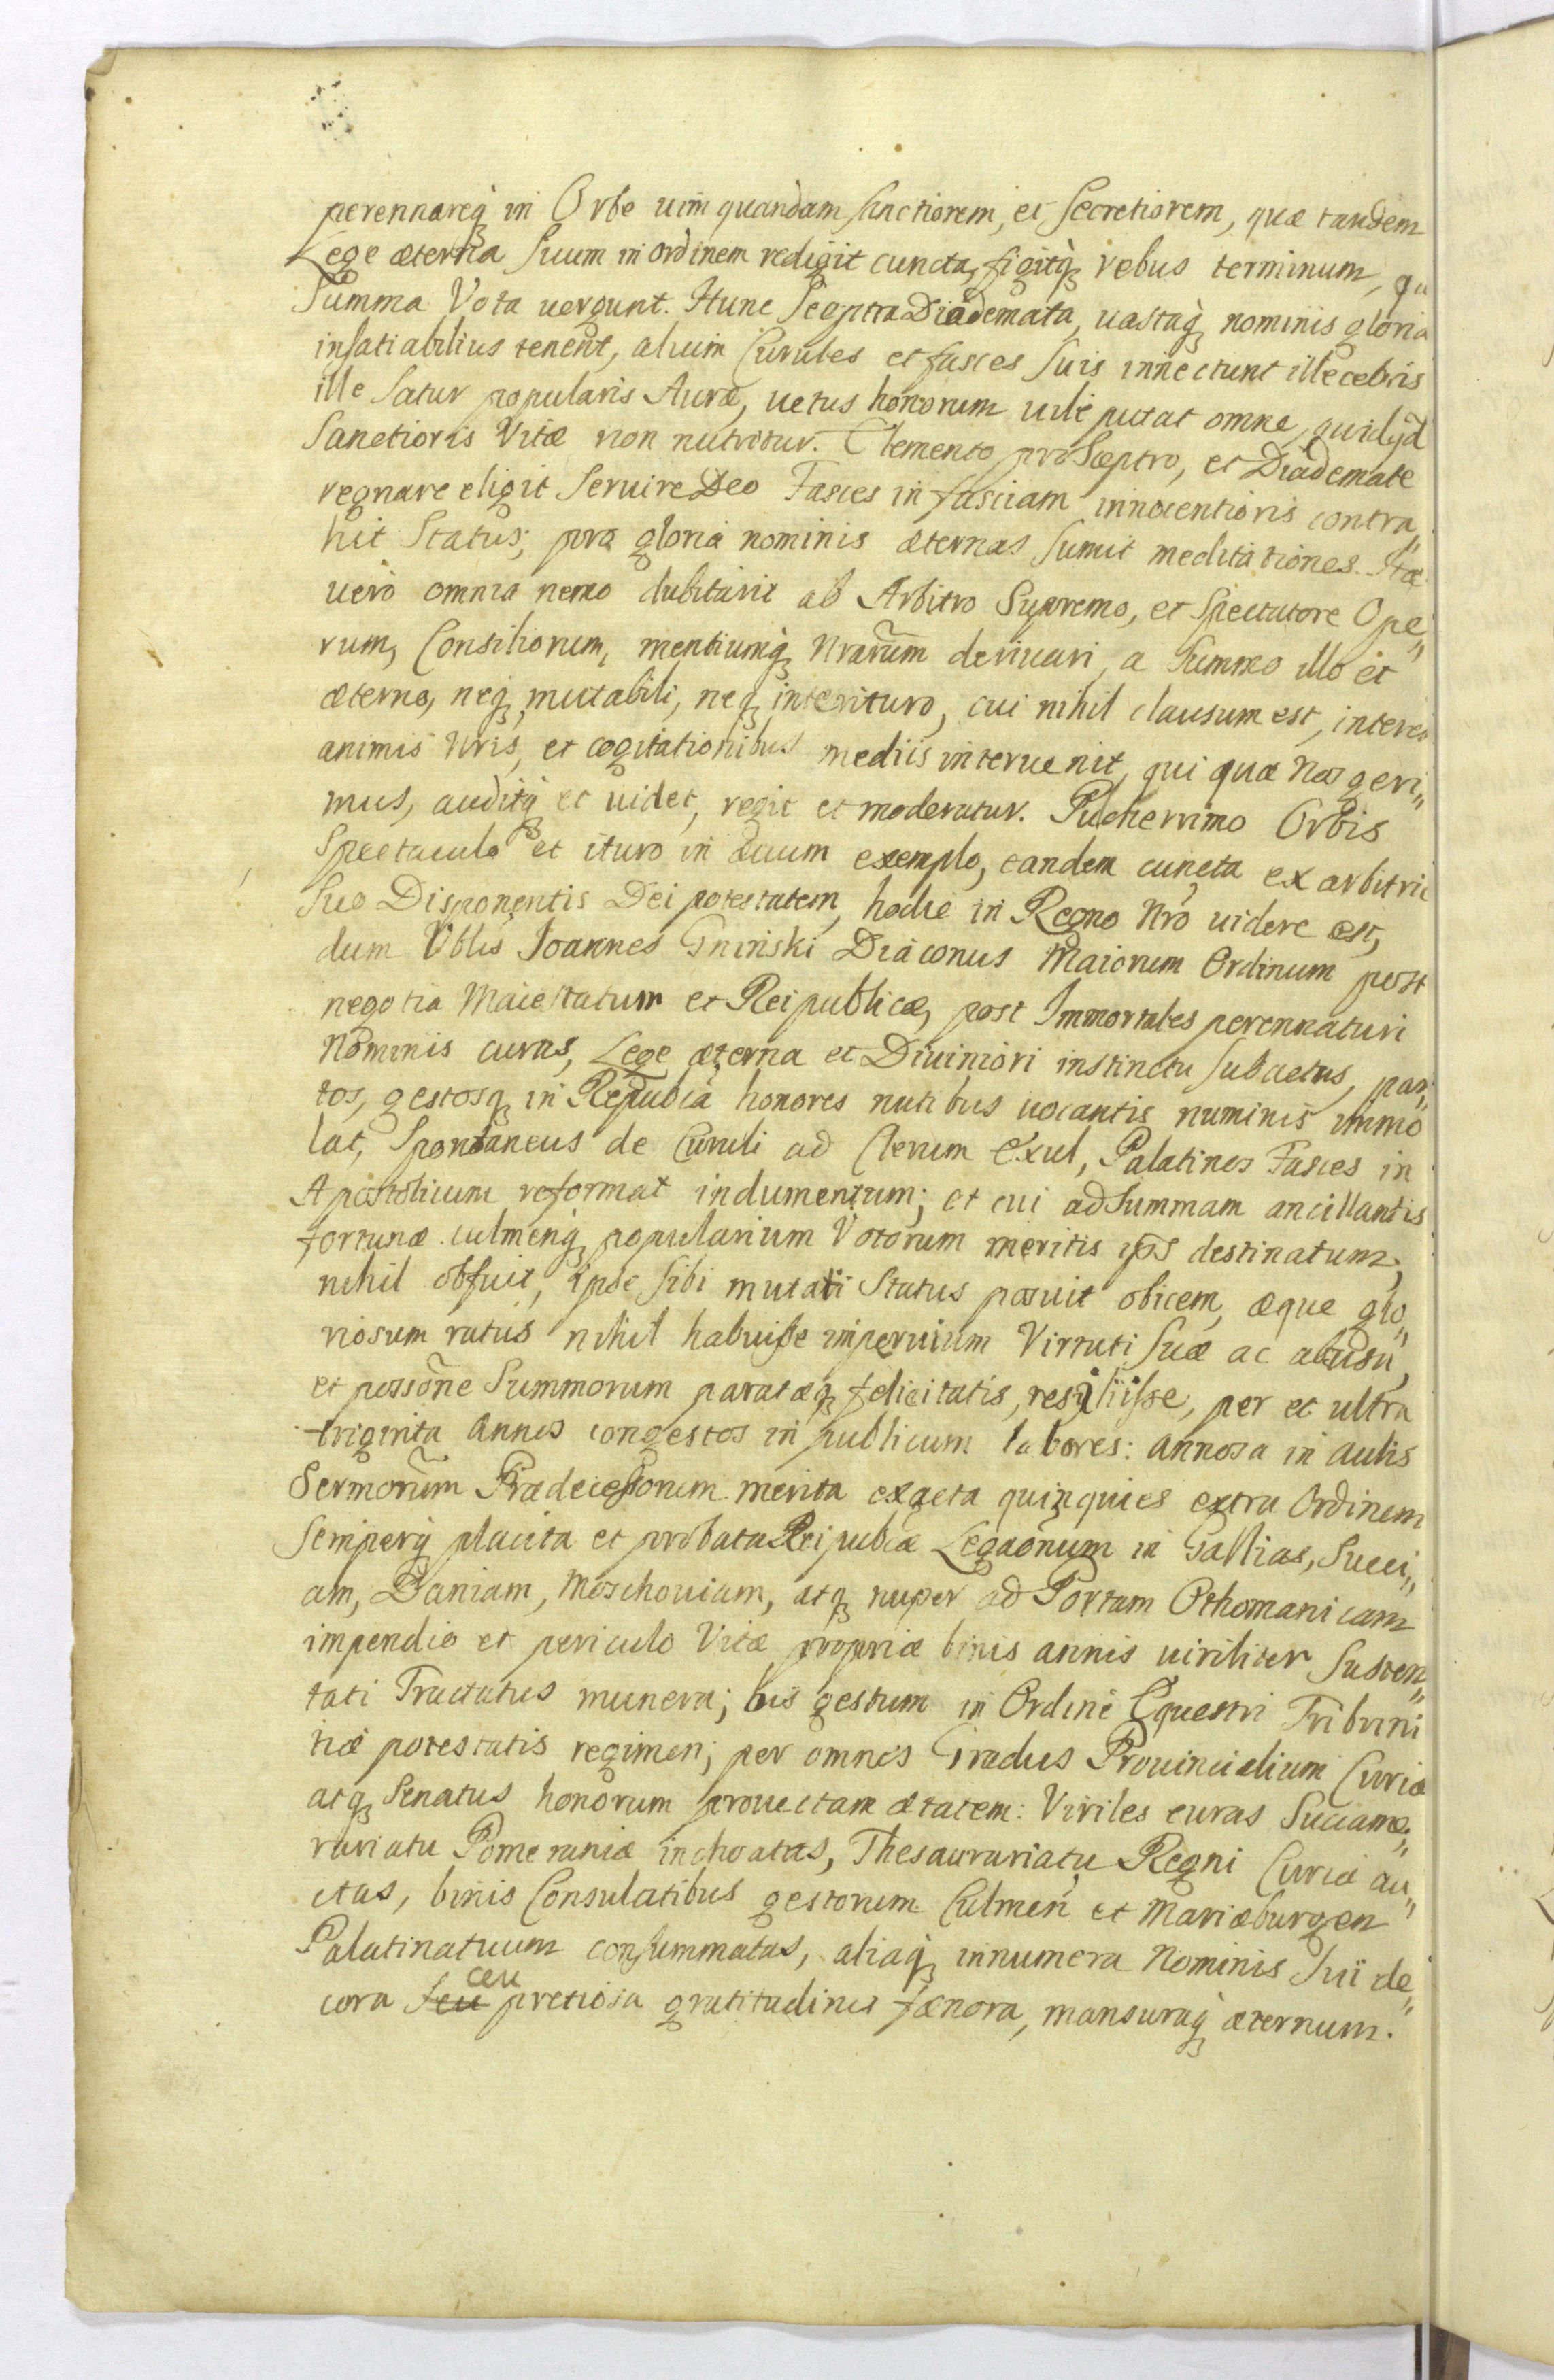 perennareq́ in Orbe uim quandam sanctiorem, et Secretiorem, quæ tandem
Lege æterna suum in ordinem redigit cuncta, figitq́ rebus terminum, qu
Summa Vota uergunt. Hunc Sceptra Diademata, uastaq́ nominis gloria
insatiabilius tenent, alium Curules et fasces suis innectunt illecebris
ille satur popularis Auræ, uetus honorum uile putat omne, quidqd
Sanctioris Vitæ non nutritur. Elemento pro Sceptro, et Diademate
regnare eligit Seruire Deo Fasces in fasciam innocentioris contra„
hit Status; pro gloria nominis æternas sumit meditationes. Hæ
uerò omnia nemo dubitarit ab Arbitro Supremo, et Spectatore Ope„
rum, Consiliorum, mentiumq́ nrarum deriuari, a Summo illo et
æterno, neq́ mutabili, neq́ interituro, cui nihil clausum est, interes
animis nris, et cogitationibus mediis interuenit, qui quæ nos geri„
mus, auditq́ et uidet, regit et moderatur. Pulcherrimo Orbis
Spectaculo et ituro in æuum exemplo, eandem cuncta ex arbitrio
Suo Disponentis Dei potestatem, hodie in Regno Nrõ uidere est,
dum Vblis Joannes Gninski Diaconus Maiorum Ordinum post
negotia Maiestatum et Reipublicæ, post Immortales perennaturi
Nominis curas, Lege æterna et Diuiniori instinctu subactus, par„
tos, gestosq́ in Repubca honores nutibus uocantis numinis immo
lat, Spontaneus de Curuli ad Clerum Exul, Palatinos Fasces in
Apostolicum reformat indumentum; et cui ad Summam ancillantis
fortunæ culmenq́ popularium Votorum meritis ips destinatum,
nihil obfuit, ipse sibi mutati Status posuit obicem, æque glo„
riosum ratus nihil habuisse imperuium Virtuti suæ ac abusu,
et persone Summorum paratæq́ felicitatis, resiliisse, per et ultra
triginta annos congestos in publicum labores: annosa in aulis
Sermorum Prædecessorum merita exacta quinquies extra Ordinem
Semperq́ placita et probata Reipubcæ Legaonum in Gallias, Sueci„
am, Daniam, Moschouiam, atq́ nuper ad Portam Othomanicam
impendio et periculo Vitæ propriæ binis annis uiriliter Susten„
tati Tractatus munera; bis gestum in Ordine Equestri Tribuni
tiæ potestatis regimen; per omnes Gradus Prouincialium Curiæ
atq́ Senatus honorum prouectam ætatem: Viriles curas Succame„
rariatu Pomeraniæ inchoatas, Thesaurariatu Regni Curiæ au„
ctas, binis Consulatibus gestorum Culmen et Mariæburgen
Palatinatuum consummatas, aliaq́ innumera Nominis sui de„
cora seu ceu pretiosa gratitudinis fænora, mansuraq́ æternum.